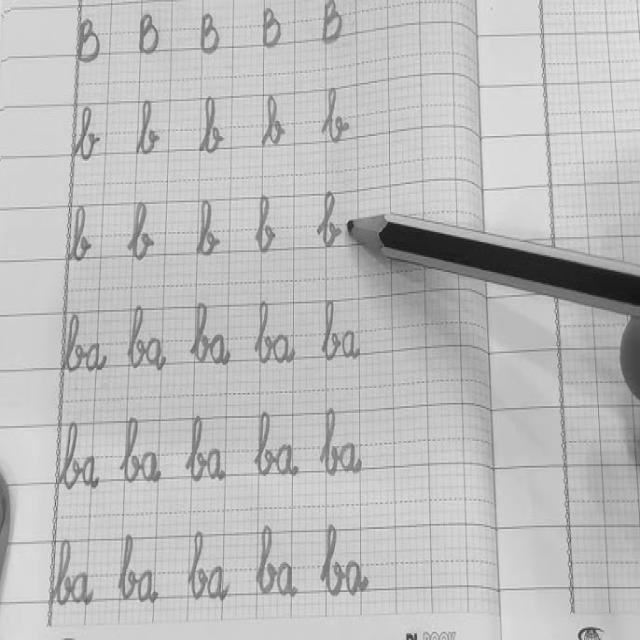 B B B B B
b b b b b
b b b b b
ba ba ba ba ba
ba ba ba ba ba
ba ba ba ba ba